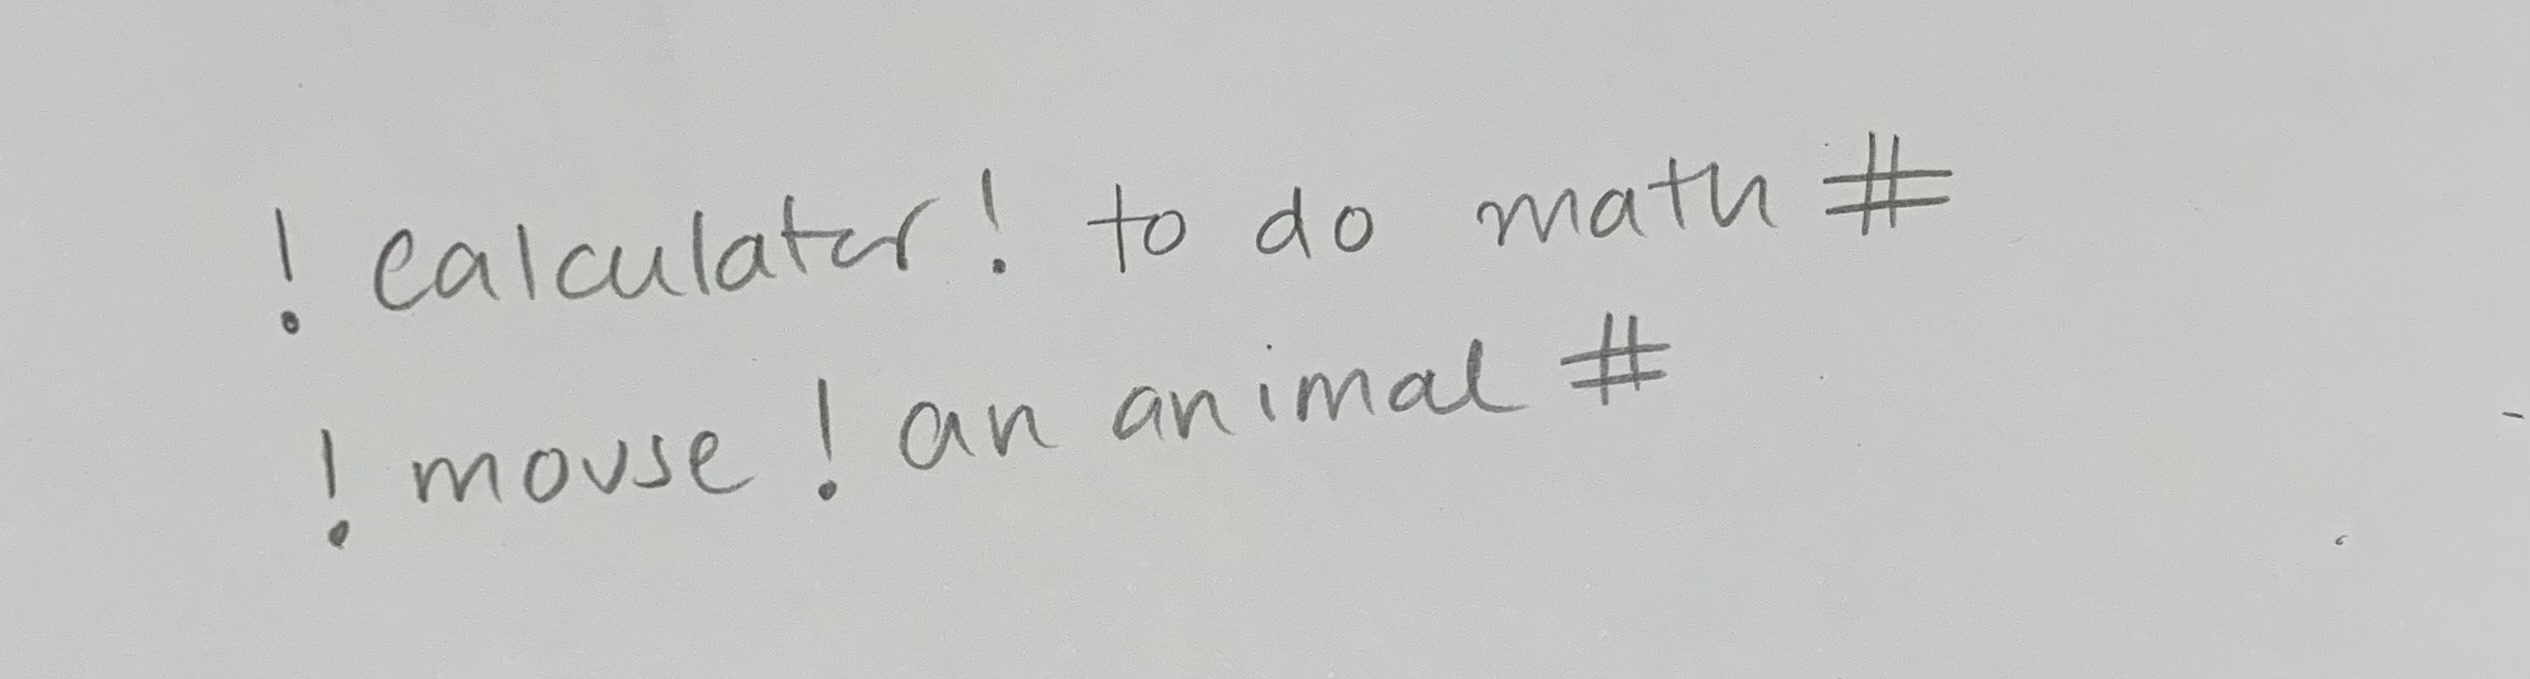 ! calculator! to do math #
! mouse ! an animal #